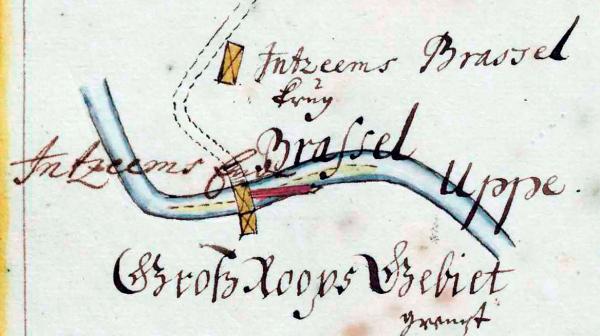 Intzeems Brassel
krüg
Intzeems
Brassel
Uppe.
Groß Roops Gebiet
grentzt